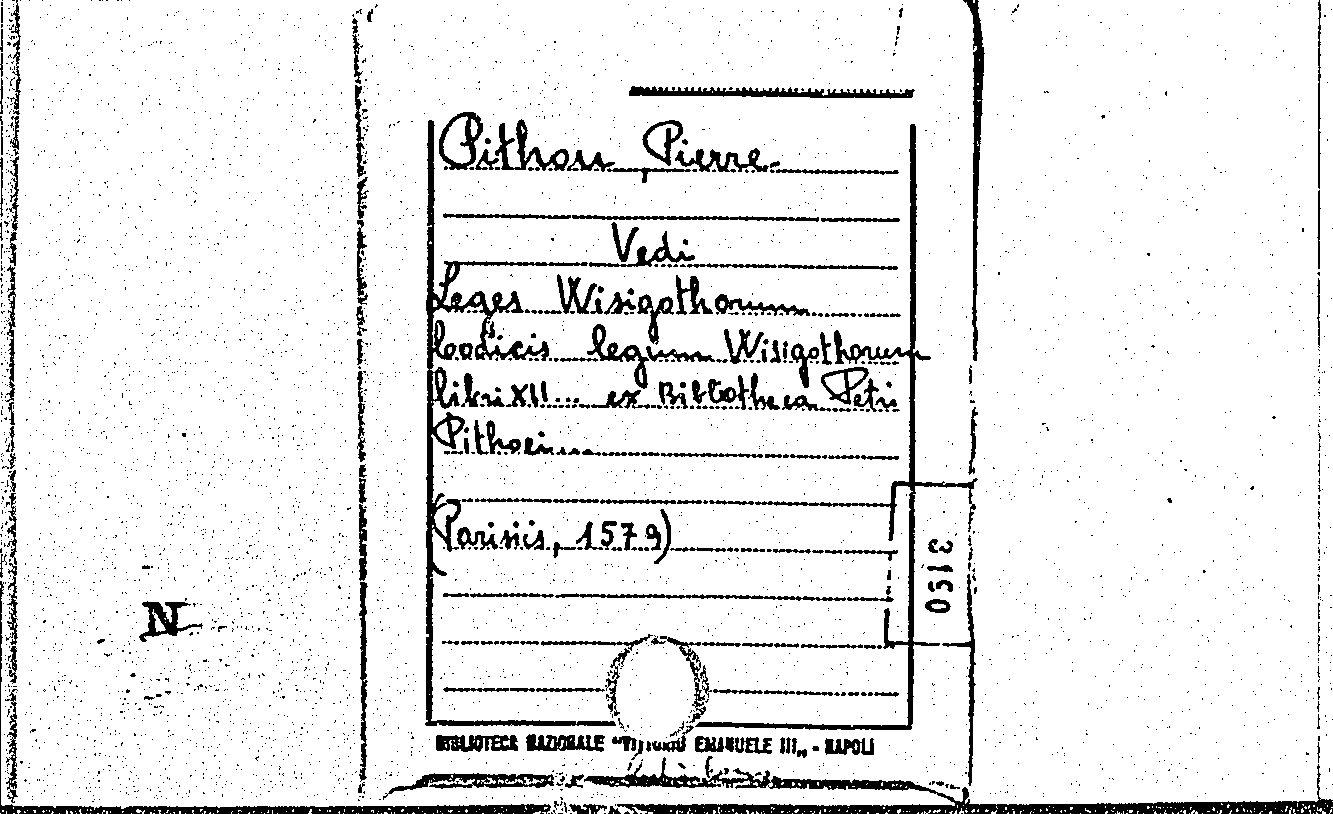 Pithou, Pierre
Vedi
Leges Wisigothorum
Codicis legum Wisigothorum
libri XII... ex Bibliotheca Petri
Pithoei
(Parisiis, 1579)
3150
N
BIBLIOTECA NAZIONALE "VITTORIO EMANUELE III„ - NAPOLI